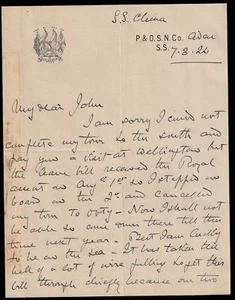 S.S. China
P. & O. S. N. Co. Aden
S.S. 7-8-22
My dear John
I am sorry I could not
complete my tour to the south and
pay you a visit at Wellington but
the Loan bill received the Royal
assent on Aug 1st so I stepped on
board on the 2d and cancelled
my tour to Ooty - Now I shall not
be able to come down there till this
time next year - But I am lucky
to be on the sea - It has taken the
hell of a lot of wire pulling to get this
bill through chiefly because our two